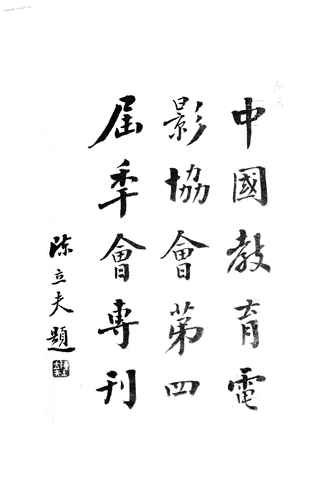 中國教育電
影協會第四
屆秊會專刊
陳立夫題